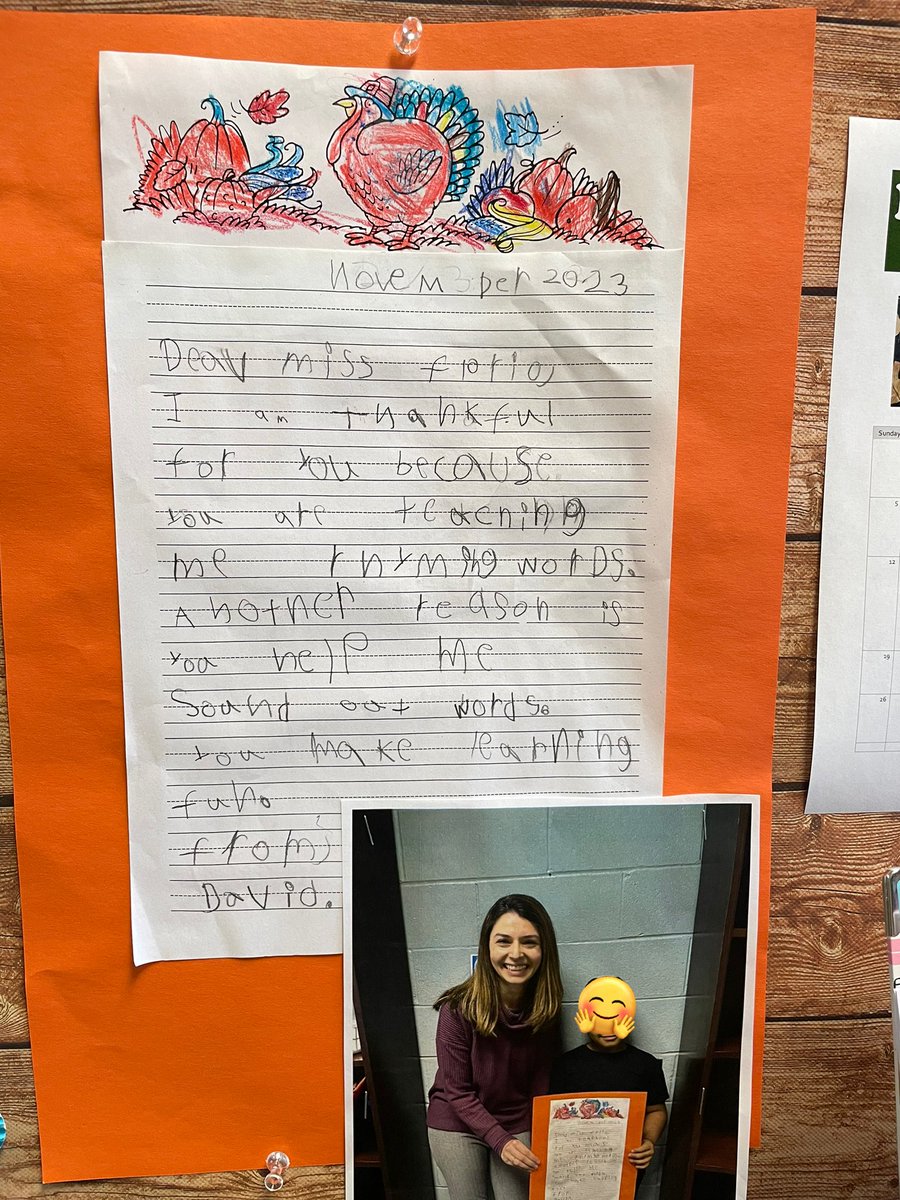 November 2023
Dear miss florio,
I am thankful
for you because
you are teaching
me rhyming words.
Another reason is
you help me
Sound out words.
you make learning
fun.
from,
David.
Sunday
5
12
19
26